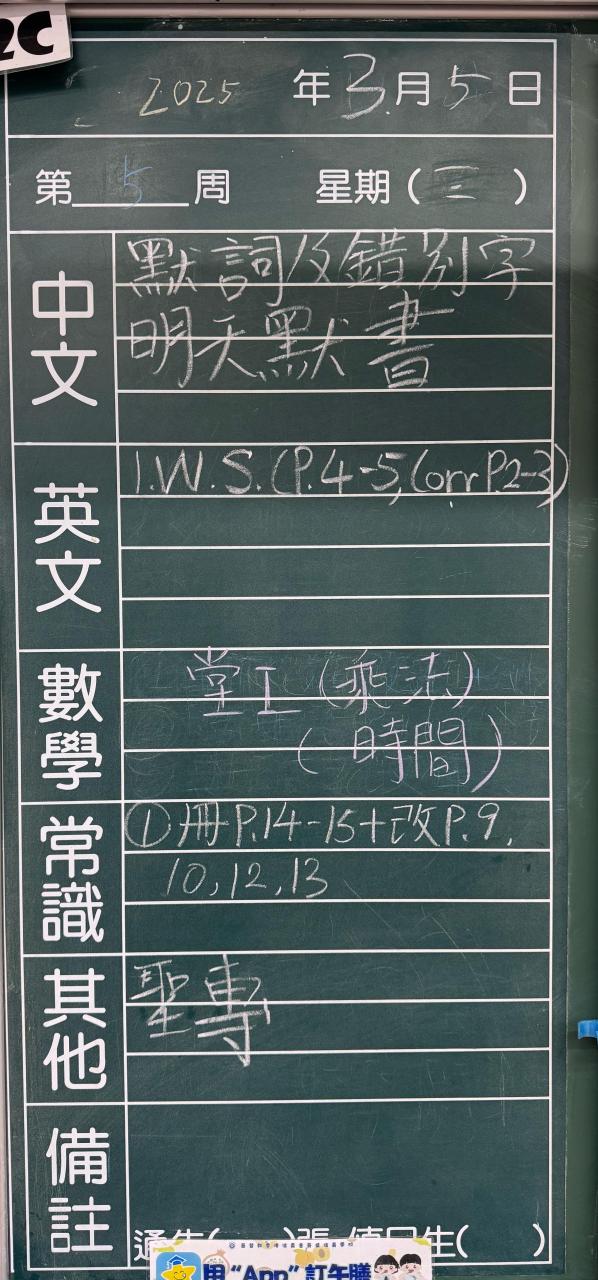 2C
2025 年 3 月 5 日
第 5 周 星期 ( 三 )
中文
默詞及錯別字
明天默書
英文
1.W.S.(P.4-5, Corr P.2-3)
數學
堂工 (乘法)
(時間)
常識
①冊P.14-15+改P.9,
10,12,13
其他
聖專
備註
通告( )張 值日生( )
用“App”訂午膳